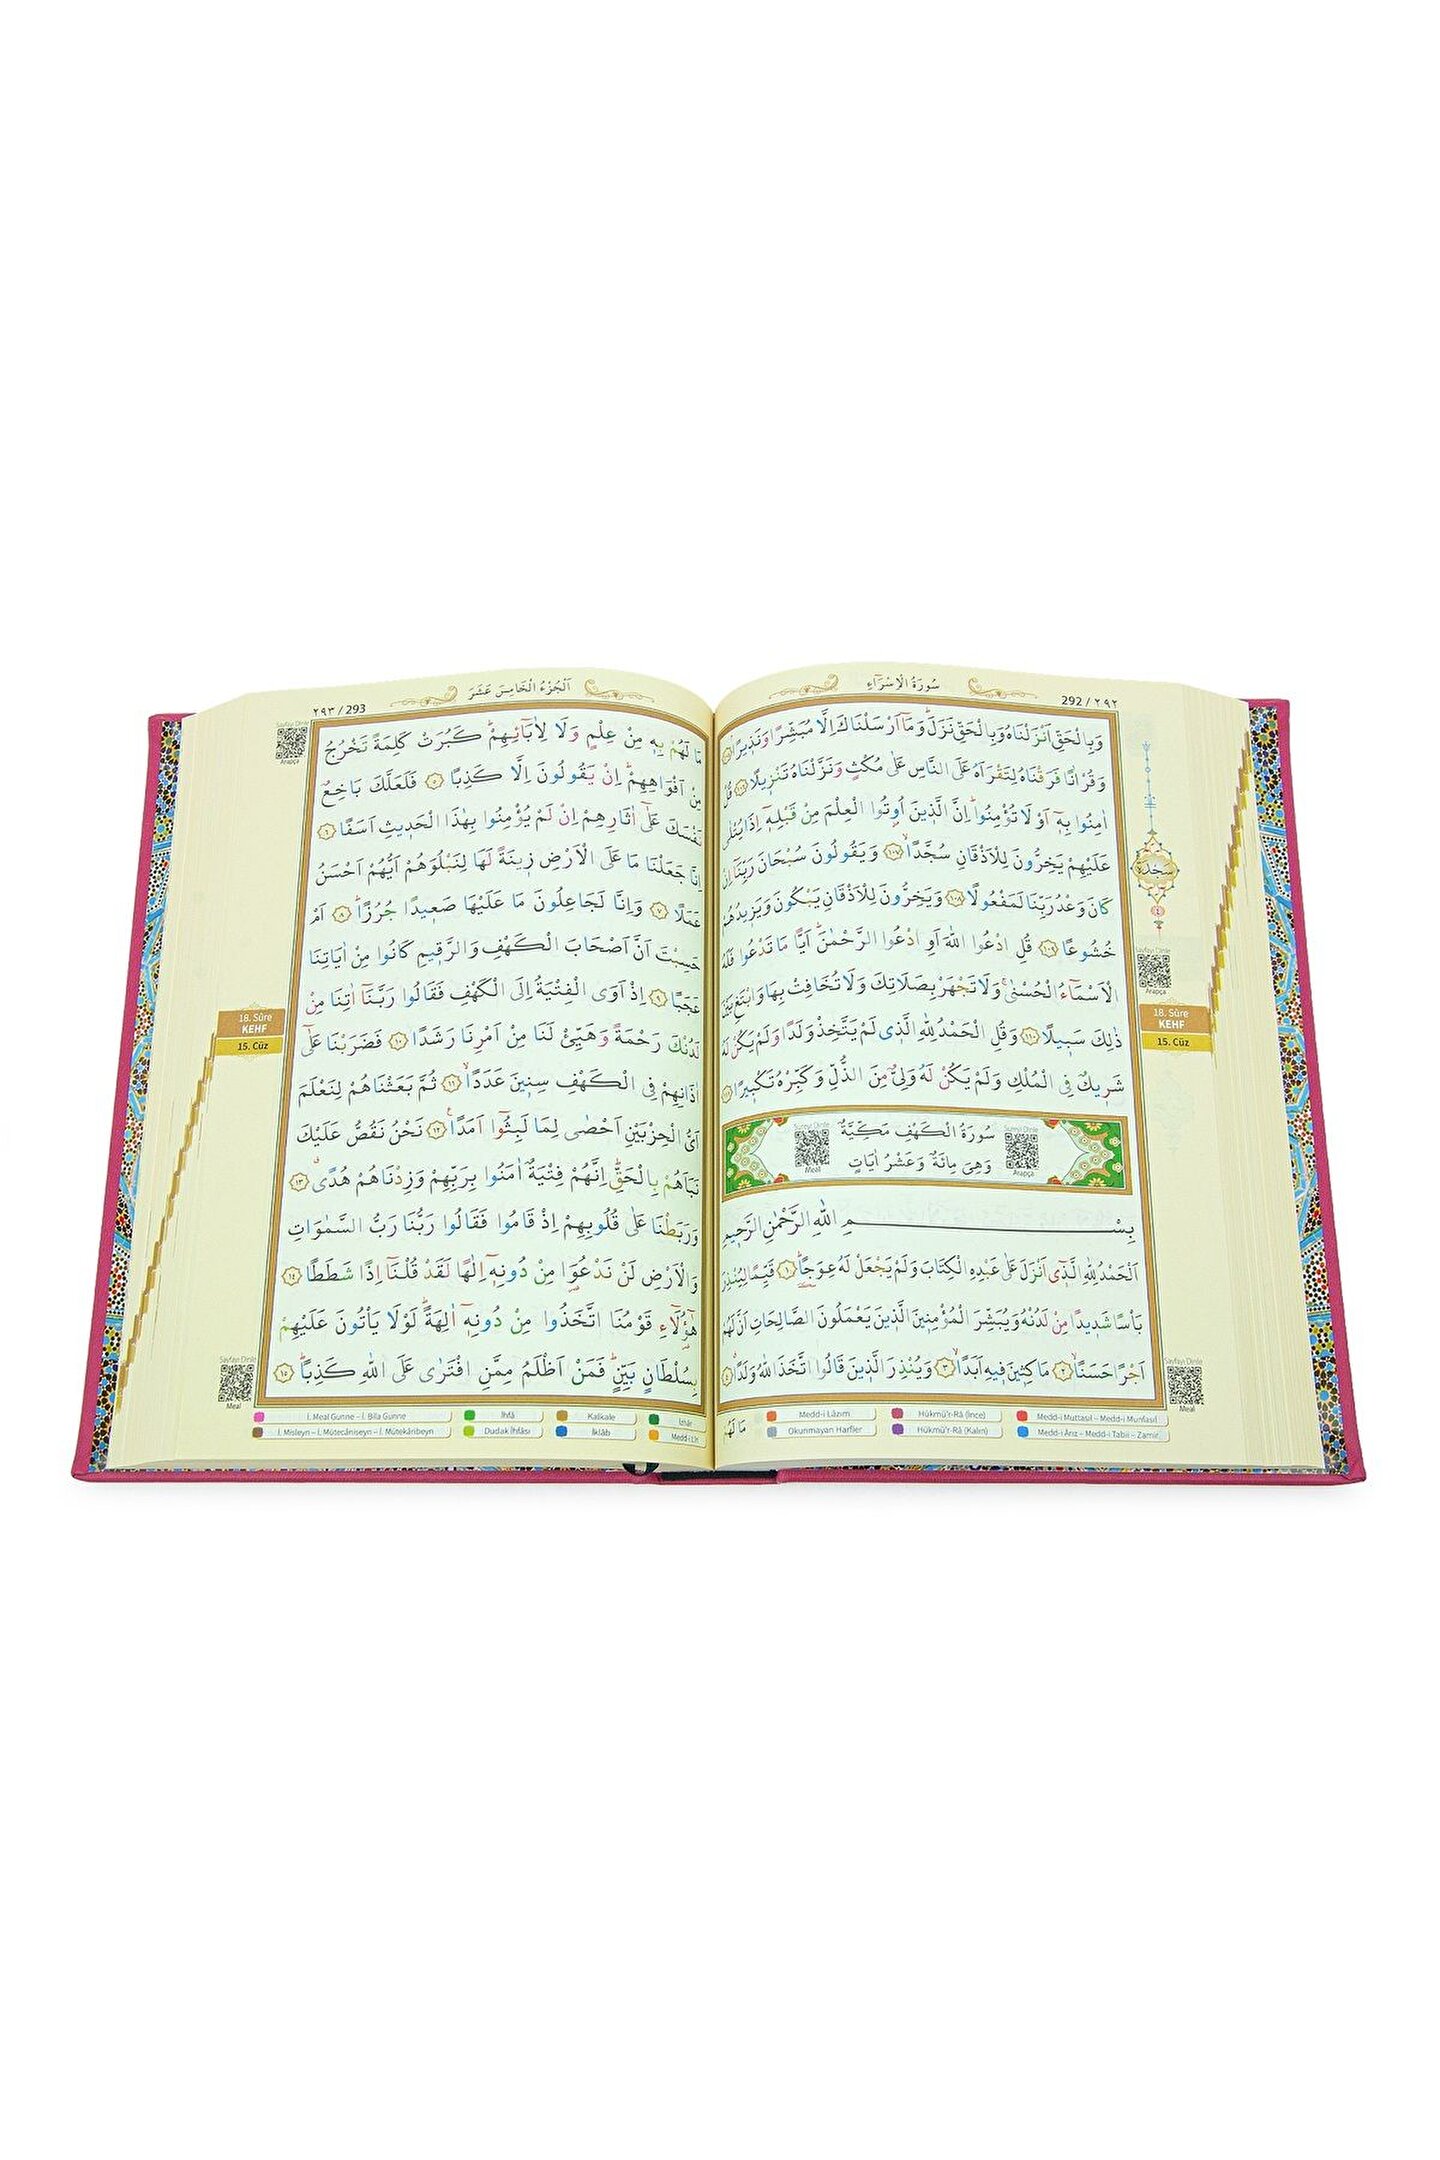 292 / ٢٩٢
سُورَةُ الْاِسْرَاءِ
وَبِالْحَقِّ اَنْزَلْنَاهُ وَبِالْحَقِّ نَزَلَ وَمَا اَرْسَلْنَاكَ اِلَّا مُبَشِّرًا وَنَذِيرًا
وَقُرْاٰنًا فَرَقْنَاهُ لِتَقْرَاَهُ عَلَى النَّاسِ عَلٰى مُكْثٍ وَنَزَّلْنَاهُ تَنْزِيلًا ﴿١٠٦﴾ قُلْ
اٰمِنُوا بِهِٓ اَوْ لَا تُؤْمِنُوا اِنَّ الَّذِينَ اُوتُوا الْعِلْمَ مِنْ قَبْلِهِٓ اِذَا يُتْلٰى
عَلَيْهِمْ يَخِرُّونَ لِلْاَذْقَانِ سُجَّدًا ﴿١٠٧﴾ وَيَقُولُونَ سُبْحَانَ رَبِّنَٓا اِنْ
كَانَ وَعْدُ رَبِّنَا لَمَفْعُولًا ﴿١٠٨﴾ وَيَخِرُّونَ لِلْاَذْقَانِ يَبْكُونَ وَيَزِيدُهُمْ
خُشُوعًا ﴿١٠٩﴾ قُلِ ادْعُوا اللّٰهَ اَوِ ادْعُوا الرَّحْمٰنَ اَيًّا مَا تَدْعُوا فَلَهُ
الْاَسْمَٓاءُ الْحُسْنٰى وَلَا تَجْهَرْ بِصَلَاتِكَ وَلَا تُخَافِتْ بِهَا وَابْتَغِ بَيْنَ
ذٰلِكَ سَبِيلًا ﴿١١٠﴾ وَقُلِ الْحَمْدُ لِلّٰهِ الَّذِى لَمْ يَتَّخِذْ وَلَدًا وَلَمْ يَكُنْ لَهُ
شَرِيكٌ فِى الْمُلْكِ وَلَمْ يَكُنْ لَهُ وَلِىٌّ مِنَ الذُّلِّ وَكَبِّرْهُ تَكْبِيرًا ﴿١١١﴾
سُورَةُ الْكَهْفِ مَكِّيَّةٌ
وَهِىَ مِائَةٌ وَعَشْرُ اٰيَاتٍ
Sureyi Dinle
Arapça
Meal
بِسْمِ اللّٰهِ الرَّحْمٰنِ الرَّحِيمِ
اَلْحَمْدُ لِلّٰهِ الَّذِٓى اَنْزَلَ عَلٰى عَبْدِهِ الْكِتَابَ وَلَمْ يَجْعَلْ لَهُ عِوَجًا ﴿١﴾ قَيِّمًا لِيُنْذِرَ
بَاْسًا شَدِيدًا مِنْ لَدُنْهُ وَيُبَشِّرَ الْمُؤْمِنِينَ الَّذِينَ يَعْمَلُونَ الصَّالِحَاتِ اَنَّ لَهُمْ
اَجْرًا حَسَنًا ﴿٢﴾ مَاكِثِينَ فِيهِ اَبَدًا ﴿٣﴾ وَيُنْذِرَ الَّذِينَ قَالُوا اتَّخَذَ اللّٰهُ وَلَدًا ﴿٤﴾
مَا لَهُمْ
سَجْدَة
٤
Sayfayı Dinle
Arapça
18. Sûre
KEHF
15. Cüz
Sayfayı Dinle
Meal
Medd-i Lâzım
Hükmü'r-Râ (İnce)
Medd-i Muttasıl – Medd-i Munfasıl
Okunmayan Harfler
Hükmü'r-Râ (Kalın)
Medd-i Ârız – Medd-i Tabii – Zamir
اَلْجُزْءُ الْخَامِسَ عَشَرَ
٢٩٣ / 293
مَا لَهُمْ بِهِ مِنْ عِلْمٍ وَلَا لِاٰبَٓائِهِمْ كَبُرَتْ كَلِمَةً تَخْرُجُ
مِنْ اَفْوَاهِهِمْ اِنْ يَقُولُونَ اِلَّا كَذِبًا ﴿٥﴾ فَلَعَلَّكَ بَاخِعٌ
نَفْسَكَ عَلٰٓى اٰثَارِهِمْ اِنْ لَمْ يُؤْمِنُوا بِهٰذَا الْحَدِيثِ اَسَفًا ﴿٦﴾
اِنَّا جَعَلْنَا مَا عَلَى الْاَرْضِ زِينَةً لَهَا لِنَبْلُوَهُمْ اَيُّهُمْ اَحْسَنُ
عَمَلًا ﴿٧﴾ وَاِنَّا لَجَاعِلُونَ مَا عَلَيْهَا صَعِيدًا جُرُزًا ﴿٨﴾ اَمْ
حَسِبْتَ اَنَّ اَصْحَابَ الْكَهْفِ وَالرَّقِيمِ كَانُوا مِنْ اٰيَاتِنَا
عَجَبًا ﴿٩﴾ اِذْ اَوَى الْفِتْيَةُ اِلَى الْكَهْفِ فَقَالُوا رَبَّنَٓا اٰتِنَا مِنْ
لَدُنْكَ رَحْمَةً وَهَيِّئْ لَنَا مِنْ اَمْرِنَا رَشَدًا ﴿١٠﴾ فَضَرَبْنَا عَلٰٓى
اٰذَانِهِمْ فِى الْكَهْفِ سِنِينَ عَدَدًا ﴿١١﴾ ثُمَّ بَعَثْنَاهُمْ لِنَعْلَمَ
اَىُّ الْحِزْبَيْنِ اَحْصٰى لِمَا لَبِثُٓوا اَمَدًا ﴿١٢﴾ نَحْنُ نَقُصُّ عَلَيْكَ
نَبَاَهُمْ بِالْحَقِّ اِنَّهُمْ فِتْيَةٌ اٰمَنُوا بِرَبِّهِمْ وَزِدْنَاهُمْ هُدًى ﴿١٣﴾
وَرَبَطْنَا عَلٰى قُلُوبِهِمْ اِذْ قَامُوا فَقَالُوا رَبُّنَا رَبُّ السَّمٰوَاتِ
وَالْاَرْضِ لَنْ نَدْعُوَا مِنْ دُونِهِٓ اِلٰهًا لَقَدْ قُلْنَٓا اِذًا شَطَطًا ﴿١٤﴾
هٰٓؤُلَٓاءِ قَوْمُنَا اتَّخَذُوا مِنْ دُونِهِٓ اٰلِهَةً لَوْلَا يَاْتُونَ عَلَيْهِمْ
بِسُلْطَانٍ بَيِّنٍ فَمَنْ اَظْلَمُ مِمَّنِ افْتَرٰى عَلَى اللّٰهِ كَذِبًا ﴿١٥﴾
Sayfayı Dinle
Arapça
18. Sûre
KEHF
15. Cüz
Sayfayı Dinle
Meal
İ. Meal Gunne – İ. Bila Gunne
İhfâ
Kalkale
İzhâr
İ. Misleyn – İ. Mütecâniseyn – İ. Mütekâribeyn
Dudak İhfâsı
İklâb
Medd-i Lîn